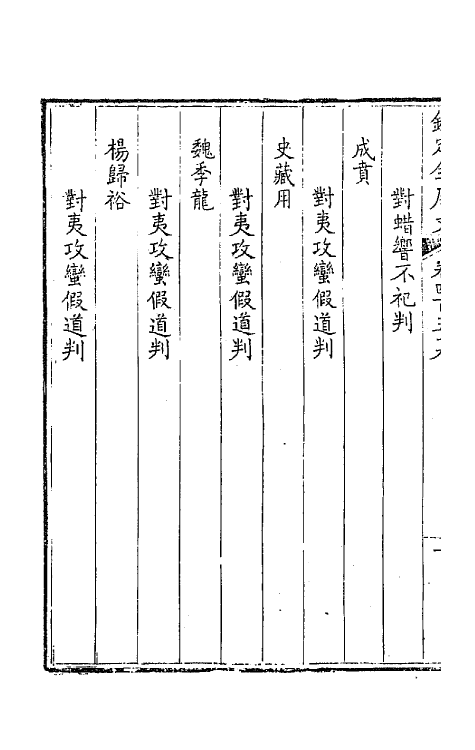 對蜡饗不祀判
成賁
對夷攻蠻假道判
史藏用
對夷攻蠻假道判
魏季龍
對夷攻蠻假道判
楊歸裕
對夷攻蠻假道判